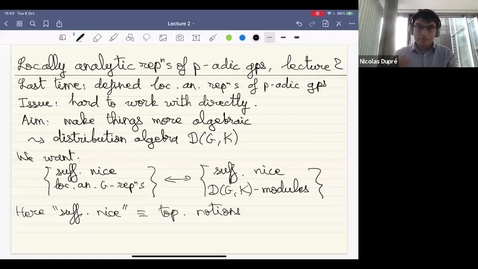 11:53 Tue 6 Oct
Lecture 2
Nicolas Dupré
Locally analytic repⁿs of p-adic gps, lecture 2
Last time: defined loc. an. repⁿs of p-adic gps
Issue: hard to work with directly.
Aim: make things more algebraic
⇝ distribution algebra D(G, K)
We want:
{ suff. nice loc. an. G-repⁿs } ⟷ { suff. nice D(G, K)-modules }
Here "suff. nice" ≡ top. notions